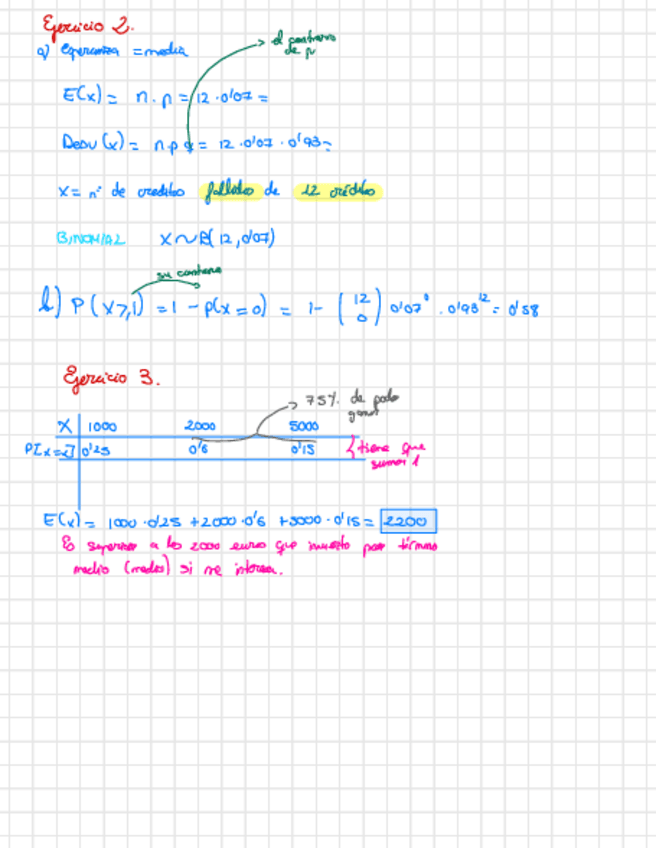 Ejercicio 2.
a) Esperanza = media
el contrario de p
E(x) = n . p = 12 . 0'07 =
Desv (x) = n.p q = 12 . 0'07 . 0'93 =
X = nº de creditos fallidos de 12 créditos
BINOMIAL X ~ B( 12, 0'07)
su contrario
b) P ( X ≥ 1) = 1 - p(x = 0) = 1- (12 0) 0'07⁰ . 0'93¹² = 0'58
Ejercicio 3.
75% de poder ganar
X 1000 2000 5000
P[X=x] 0'25 0'6 0'15 { tiene que sumar 1
E(x) = 1000 . 0'25 + 2000 . 0'6 + 5000 . 0'15 = 2200
Es superior a los 2000 euros que invierto por término
medio (media) si me interesa.